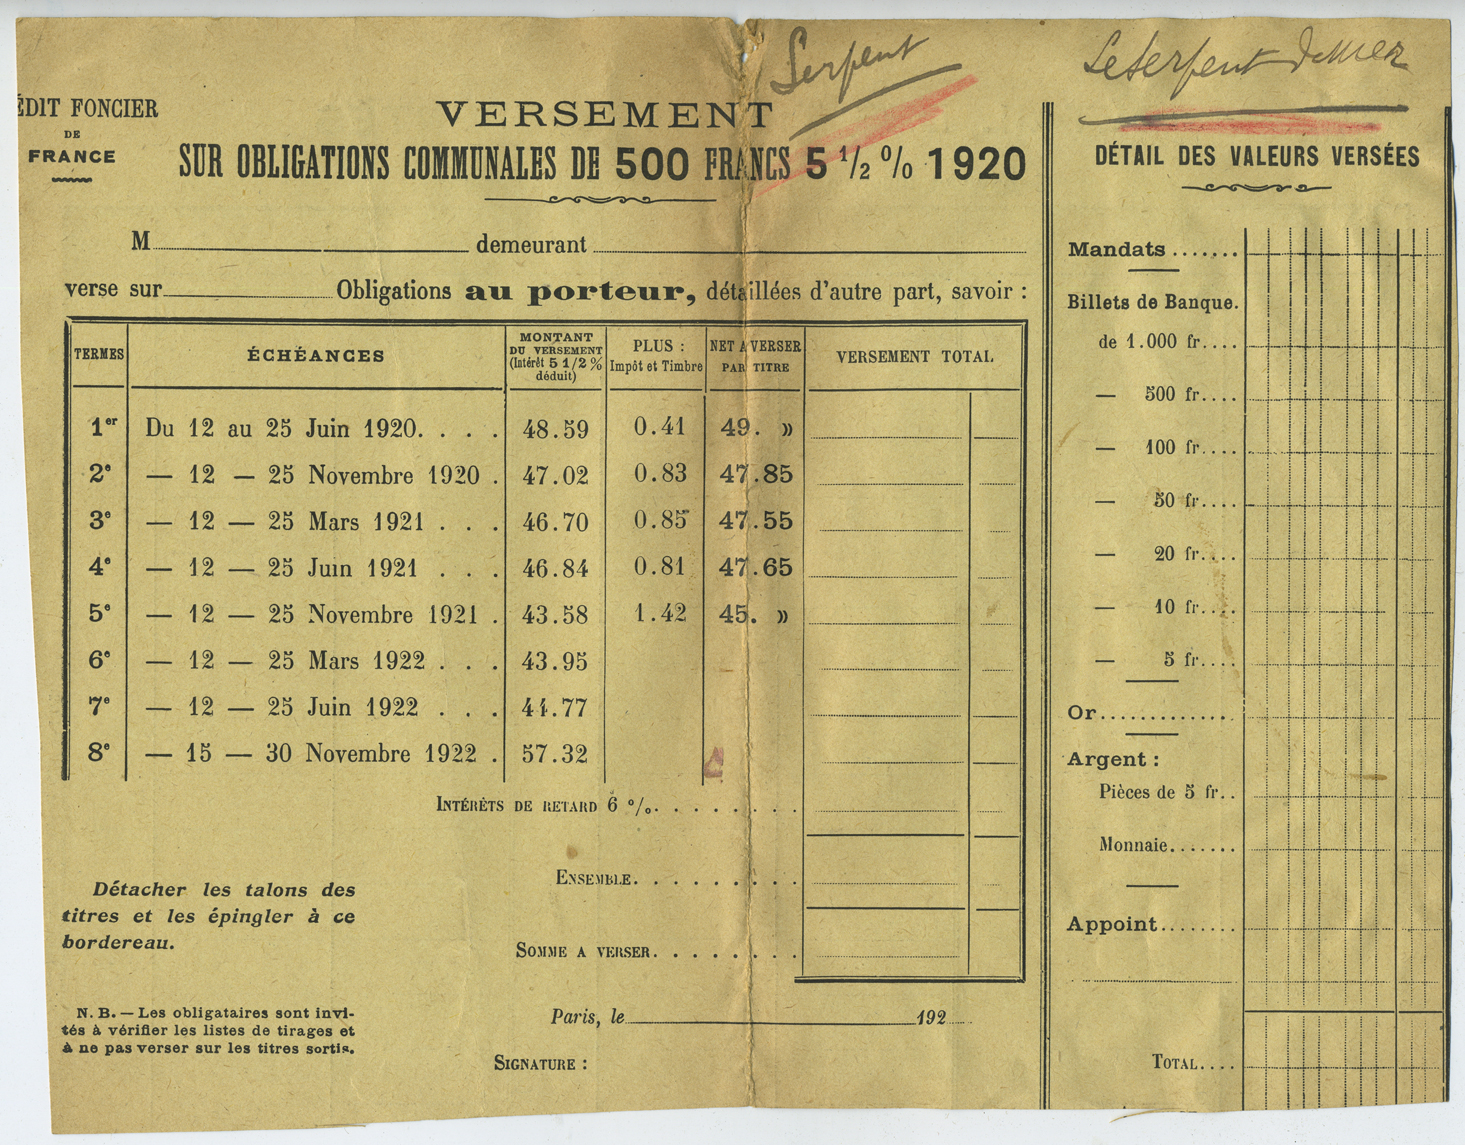 Serpent
Le serpent de mer
ÉDIT FONCIER
DE
FRANCE
VERSEMENT
SUR OBLIGATIONS COMMUNALES DE 500 FRANCS 5 1/2 % 1920
M demeurant
verse sur Obligations au porteur, détaillées d'autre part, savoir :
TERMES ÉCHÉANCES MONTANT DU VERSEMENT (Intérêt 5 1/2 % déduit) PLUS : Impôt et Timbre NET A VERSER PAR TITRE VERSEMENT TOTAL
1er Du 12 au 25 Juin 1920. . . . 48.59 0.41 49. »
2e — 12 — 25 Novembre 1920 . 47.02 0.83 47.85
3e — 12 — 25 Mars 1921 . . . 46.70 0.85 47.55
4e — 12 — 25 Juin 1921 . . . 46.84 0.81 47.65
5e — 12 — 25 Novembre 1921 . 43.58 1.42 45. »
6e — 12 — 25 Mars 1922 . . . 43.95
7e — 12 — 25 Juin 1922 . . . 44.77
8e — 15 — 30 Novembre 1922 . 57.32
INTÉRÊTS DE RETARD 6 %. . . . . . . .
ENSEMBLE. . . . . . . . .
SOMME A VERSER. . . . . . . .
Détacher les talons des
titres et les épingler à ce
bordereau.
N. B. — Les obligataires sont invi-
tés à vérifier les listes de tirages et
à ne pas verser sur les titres sortis.
Paris, le 192
SIGNATURE :
DÉTAIL DES VALEURS VERSÉES
Mandats .......
Billets de Banque.
de 1.000 fr....
— 500 fr....
— 100 fr....
— 50 fr....
— 20 fr....
— 10 fr....
— 5 fr....
Or..............
Argent :
Pièces de 5 fr..
Monnaie.......
Appoint........
TOTAL....